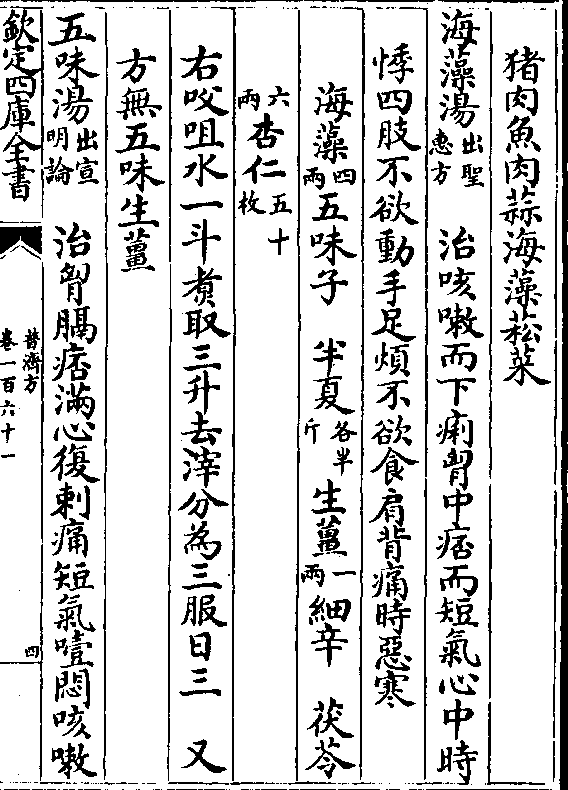 猪肉魚肉蒜海藻菘菜
海藻湯出聖惠方 治咳嗽而下痢胷中痞而短氣心中時
悸四肢不欲動手足煩不欲食肩背痛時惡寒
海藻四兩五味子 半夏各半斤生薑一兩細辛 茯苓
六兩杏仁五十枚
右㕮咀水一斗煑取三升去滓分為三服日三 又
方無五味生薑
五味湯出宣明論 治胷膈痞滿心復刺痛短氣噎悶咳嗽
欽定四庫全書
普濟方
卷一百六十一
四